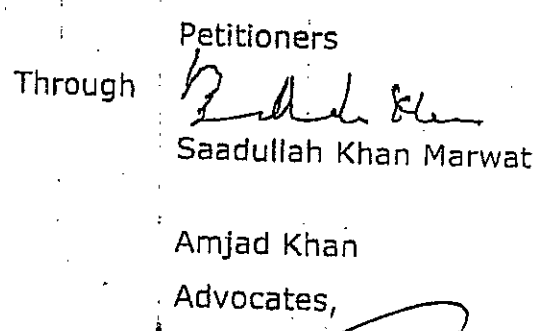 Petitioners
Through
Saadullah Khan Marwat
Amjad Khan
Advocates,